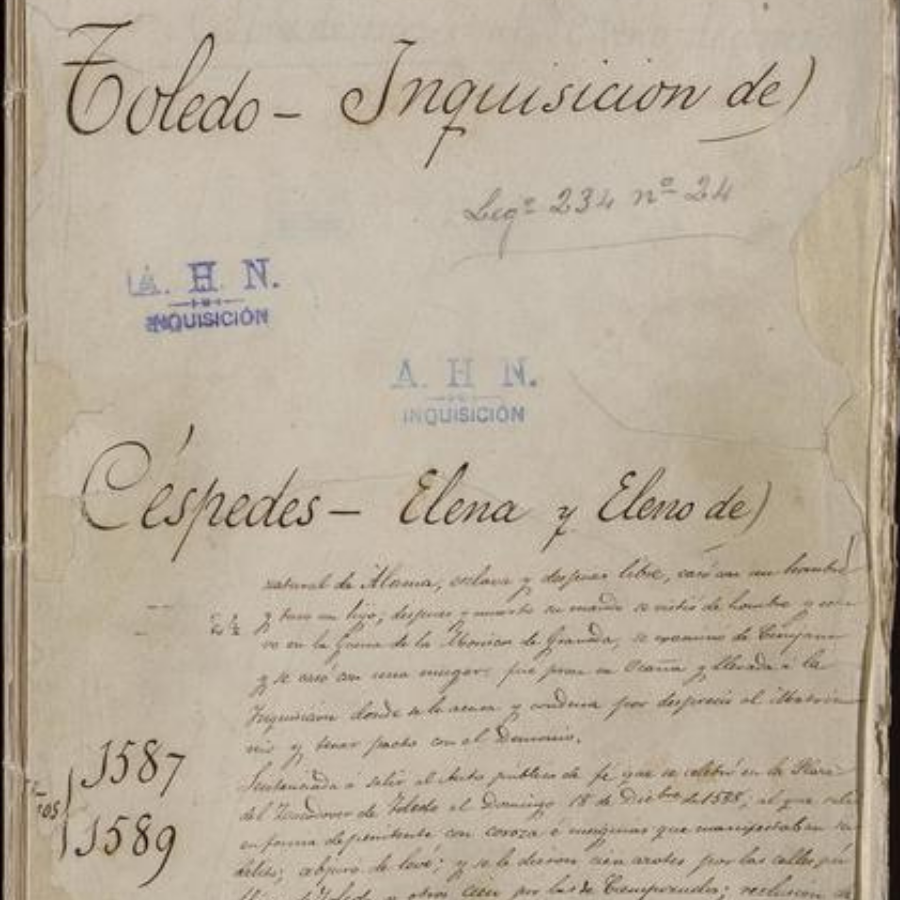 Toledo - Inquisicion de)
Legº 234 nº 24
A. H N.
INQUISICIÓN
A. H N.
INQUISICIÓN
Céspedes - Elena y Eleno de)
natural de Alama, esclava y despues libre, casó con un hombre
y tuvo un hijo; despues y muerto su marido se vistió de hombre y
en la Guerra de los Moriscos de Granada, se examinó de Cirujano
y se casó con una muger: fué presa en Ocaña y llevada á la
Inquisicion donde se le acusa y condena por desprecio al Matrimo-
nio y tener pacto con el Demonio.
1587
Sentenciada á salir al Auto publico de fé que se celebró en la Plaza
del Zocodover de Toledo el Domingo 18 de Diciebre de 1588; al que salió
en forma de penitente con coroza é insignias que manifestaban su
1589
delito; abjuró de leví; y se le dieron cien azotes por las calles pú
de Toledo y otros cien por las de Cienpozuelos; reclusion